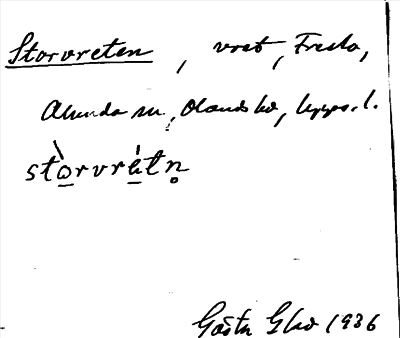 Storvreten, vret, Fresta,
Almunda sn, Olands hd, Upps. l.
stòrvrétn̥
Gösta 1936